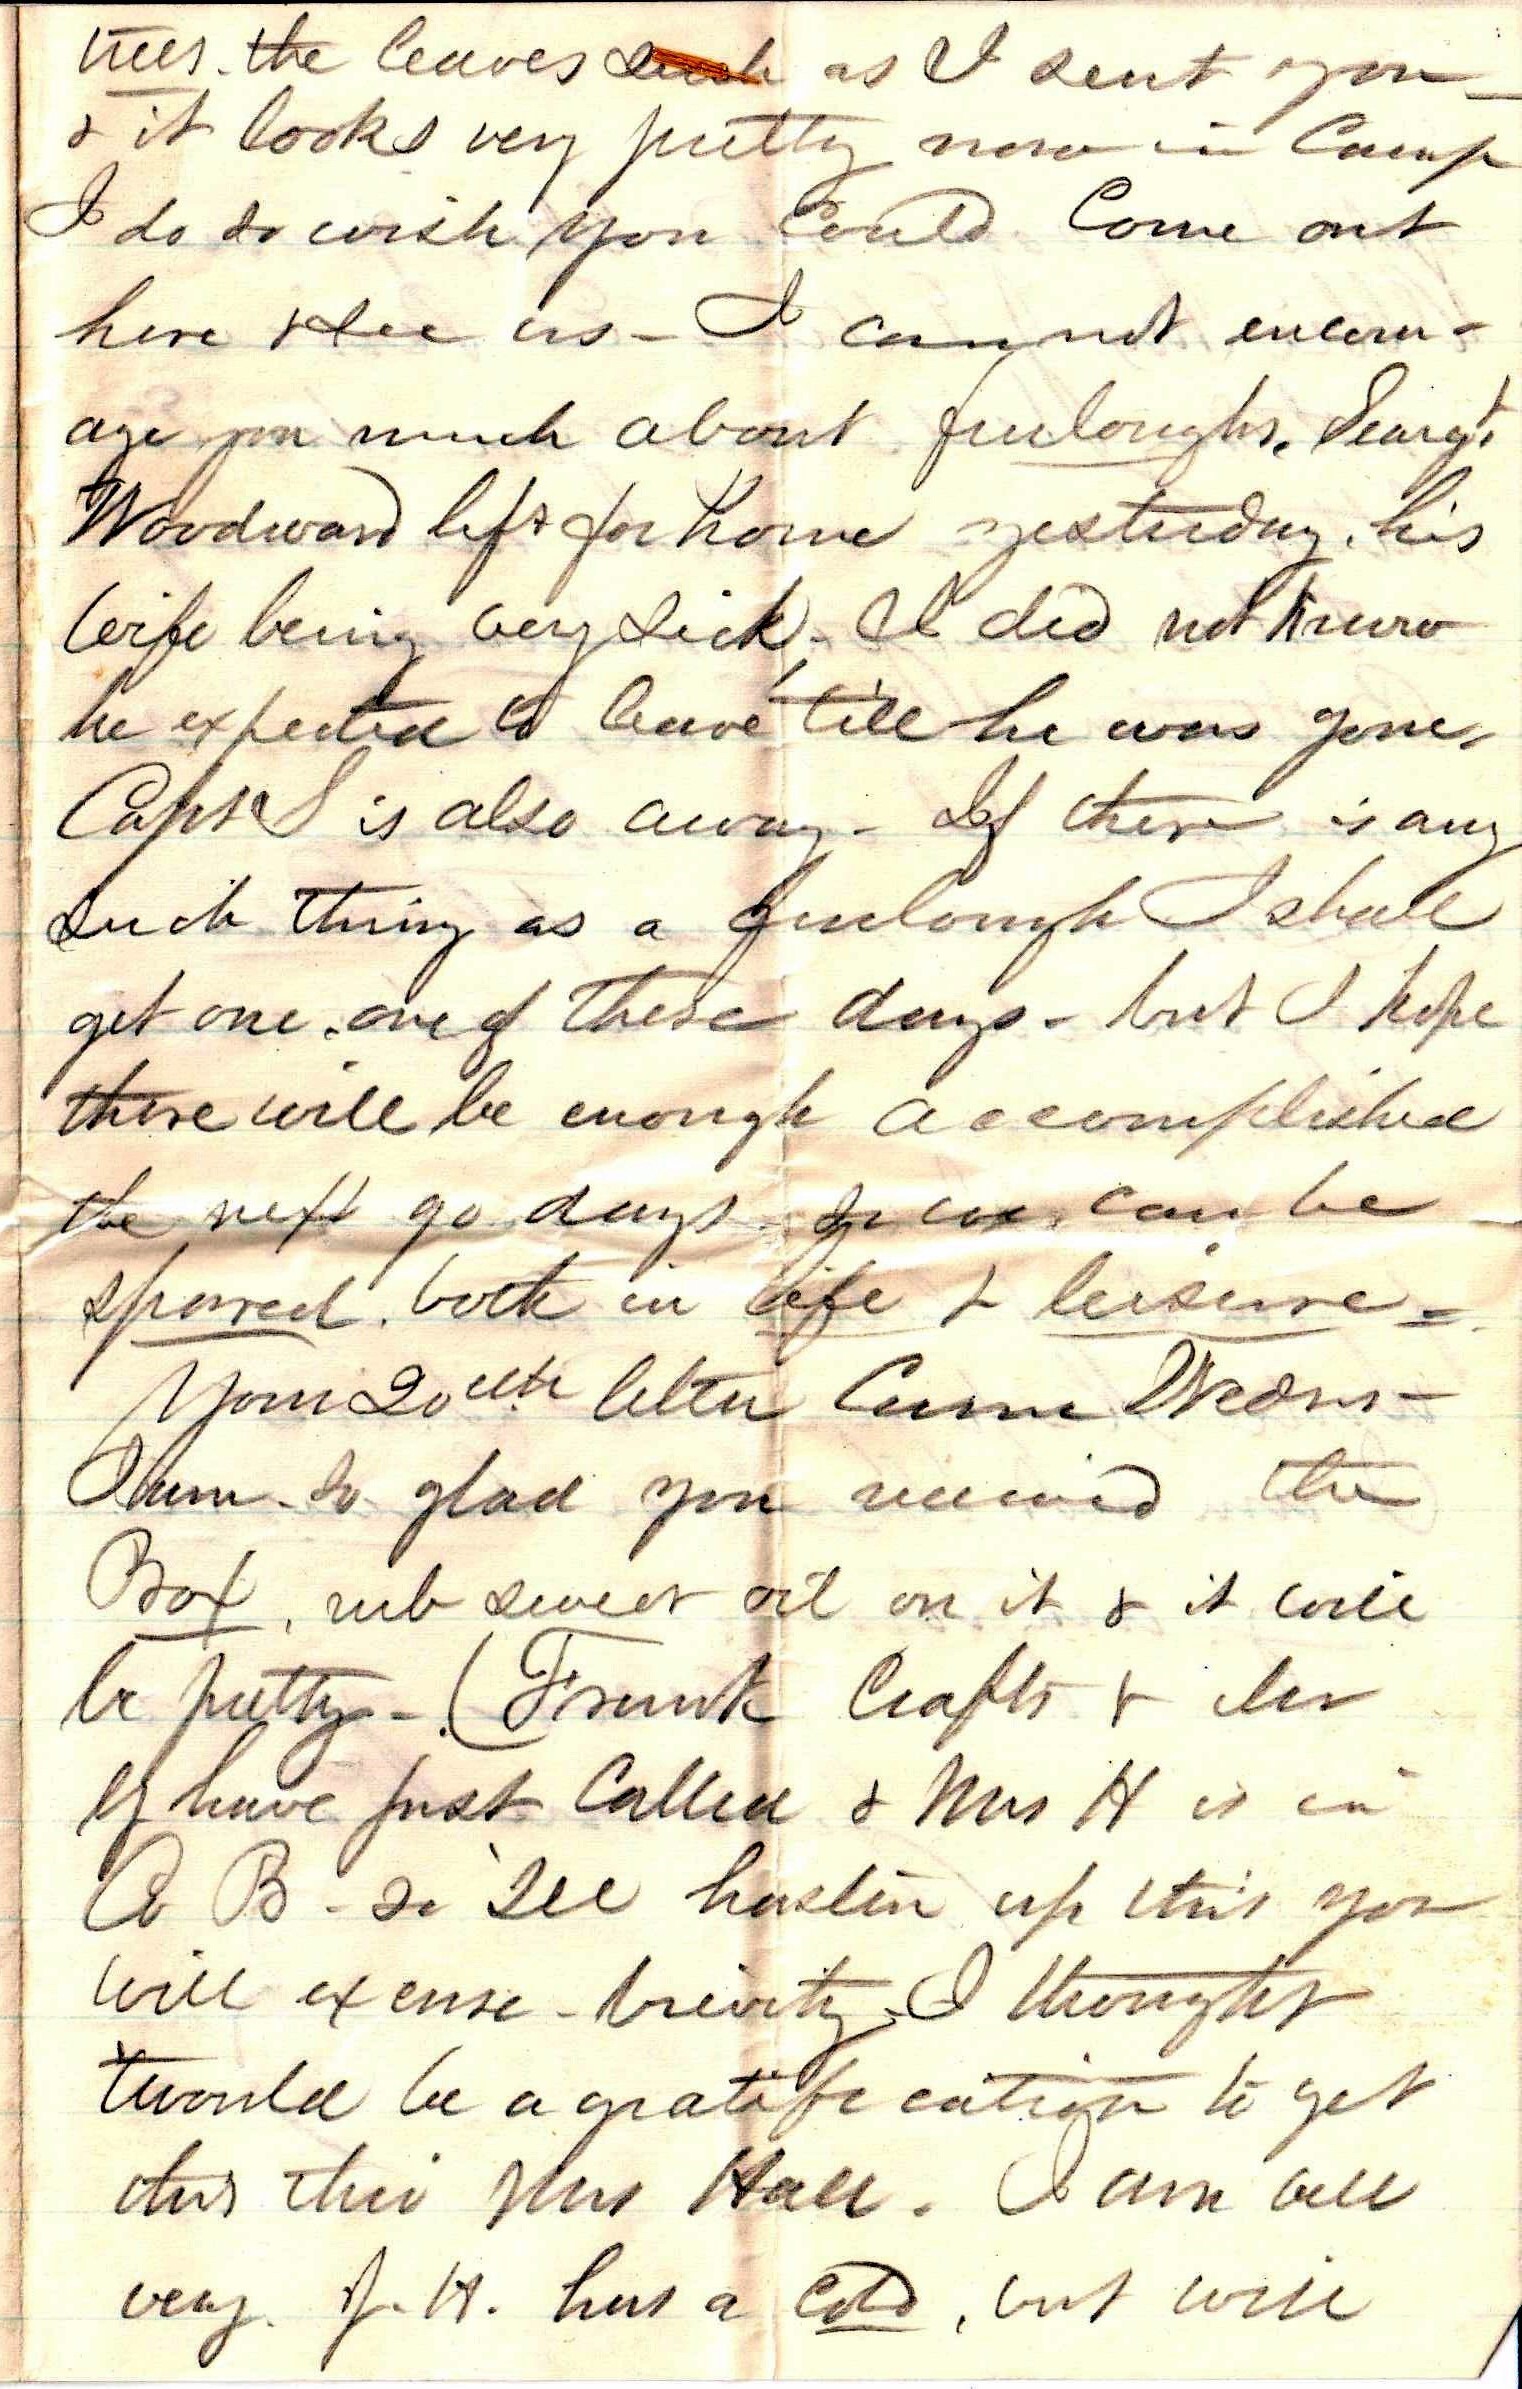 trees. the leaves such as I sent you -
& it looks very pretty now in Camp
I do so wish you could Come out
here & see us - I can not encour-
age you much about furloughs. Seargt.
Woodward left for home yesterday. his
wife being very sick - I did not know
he expected to leave till he was gone.
Capt S is also away - If there is any
such thing as a furlough I shall
get one. one of these days - but I hope
there will be enough accomplished
the next 90 days - so we can be
spared. both in life & leisure -
Your 20eth letter Came Wedns -
I am so glad you received the
Box, rub sweet oil on it & it will
be pretty - (Frank Crafts &
have just Called & Mrs H is in
A B - so I'll hasten up this you
will excuse - brevity. I thought
twould be a gratification to get
this thro Mrs Hall. I am well
very. J. H. has a cold, but will